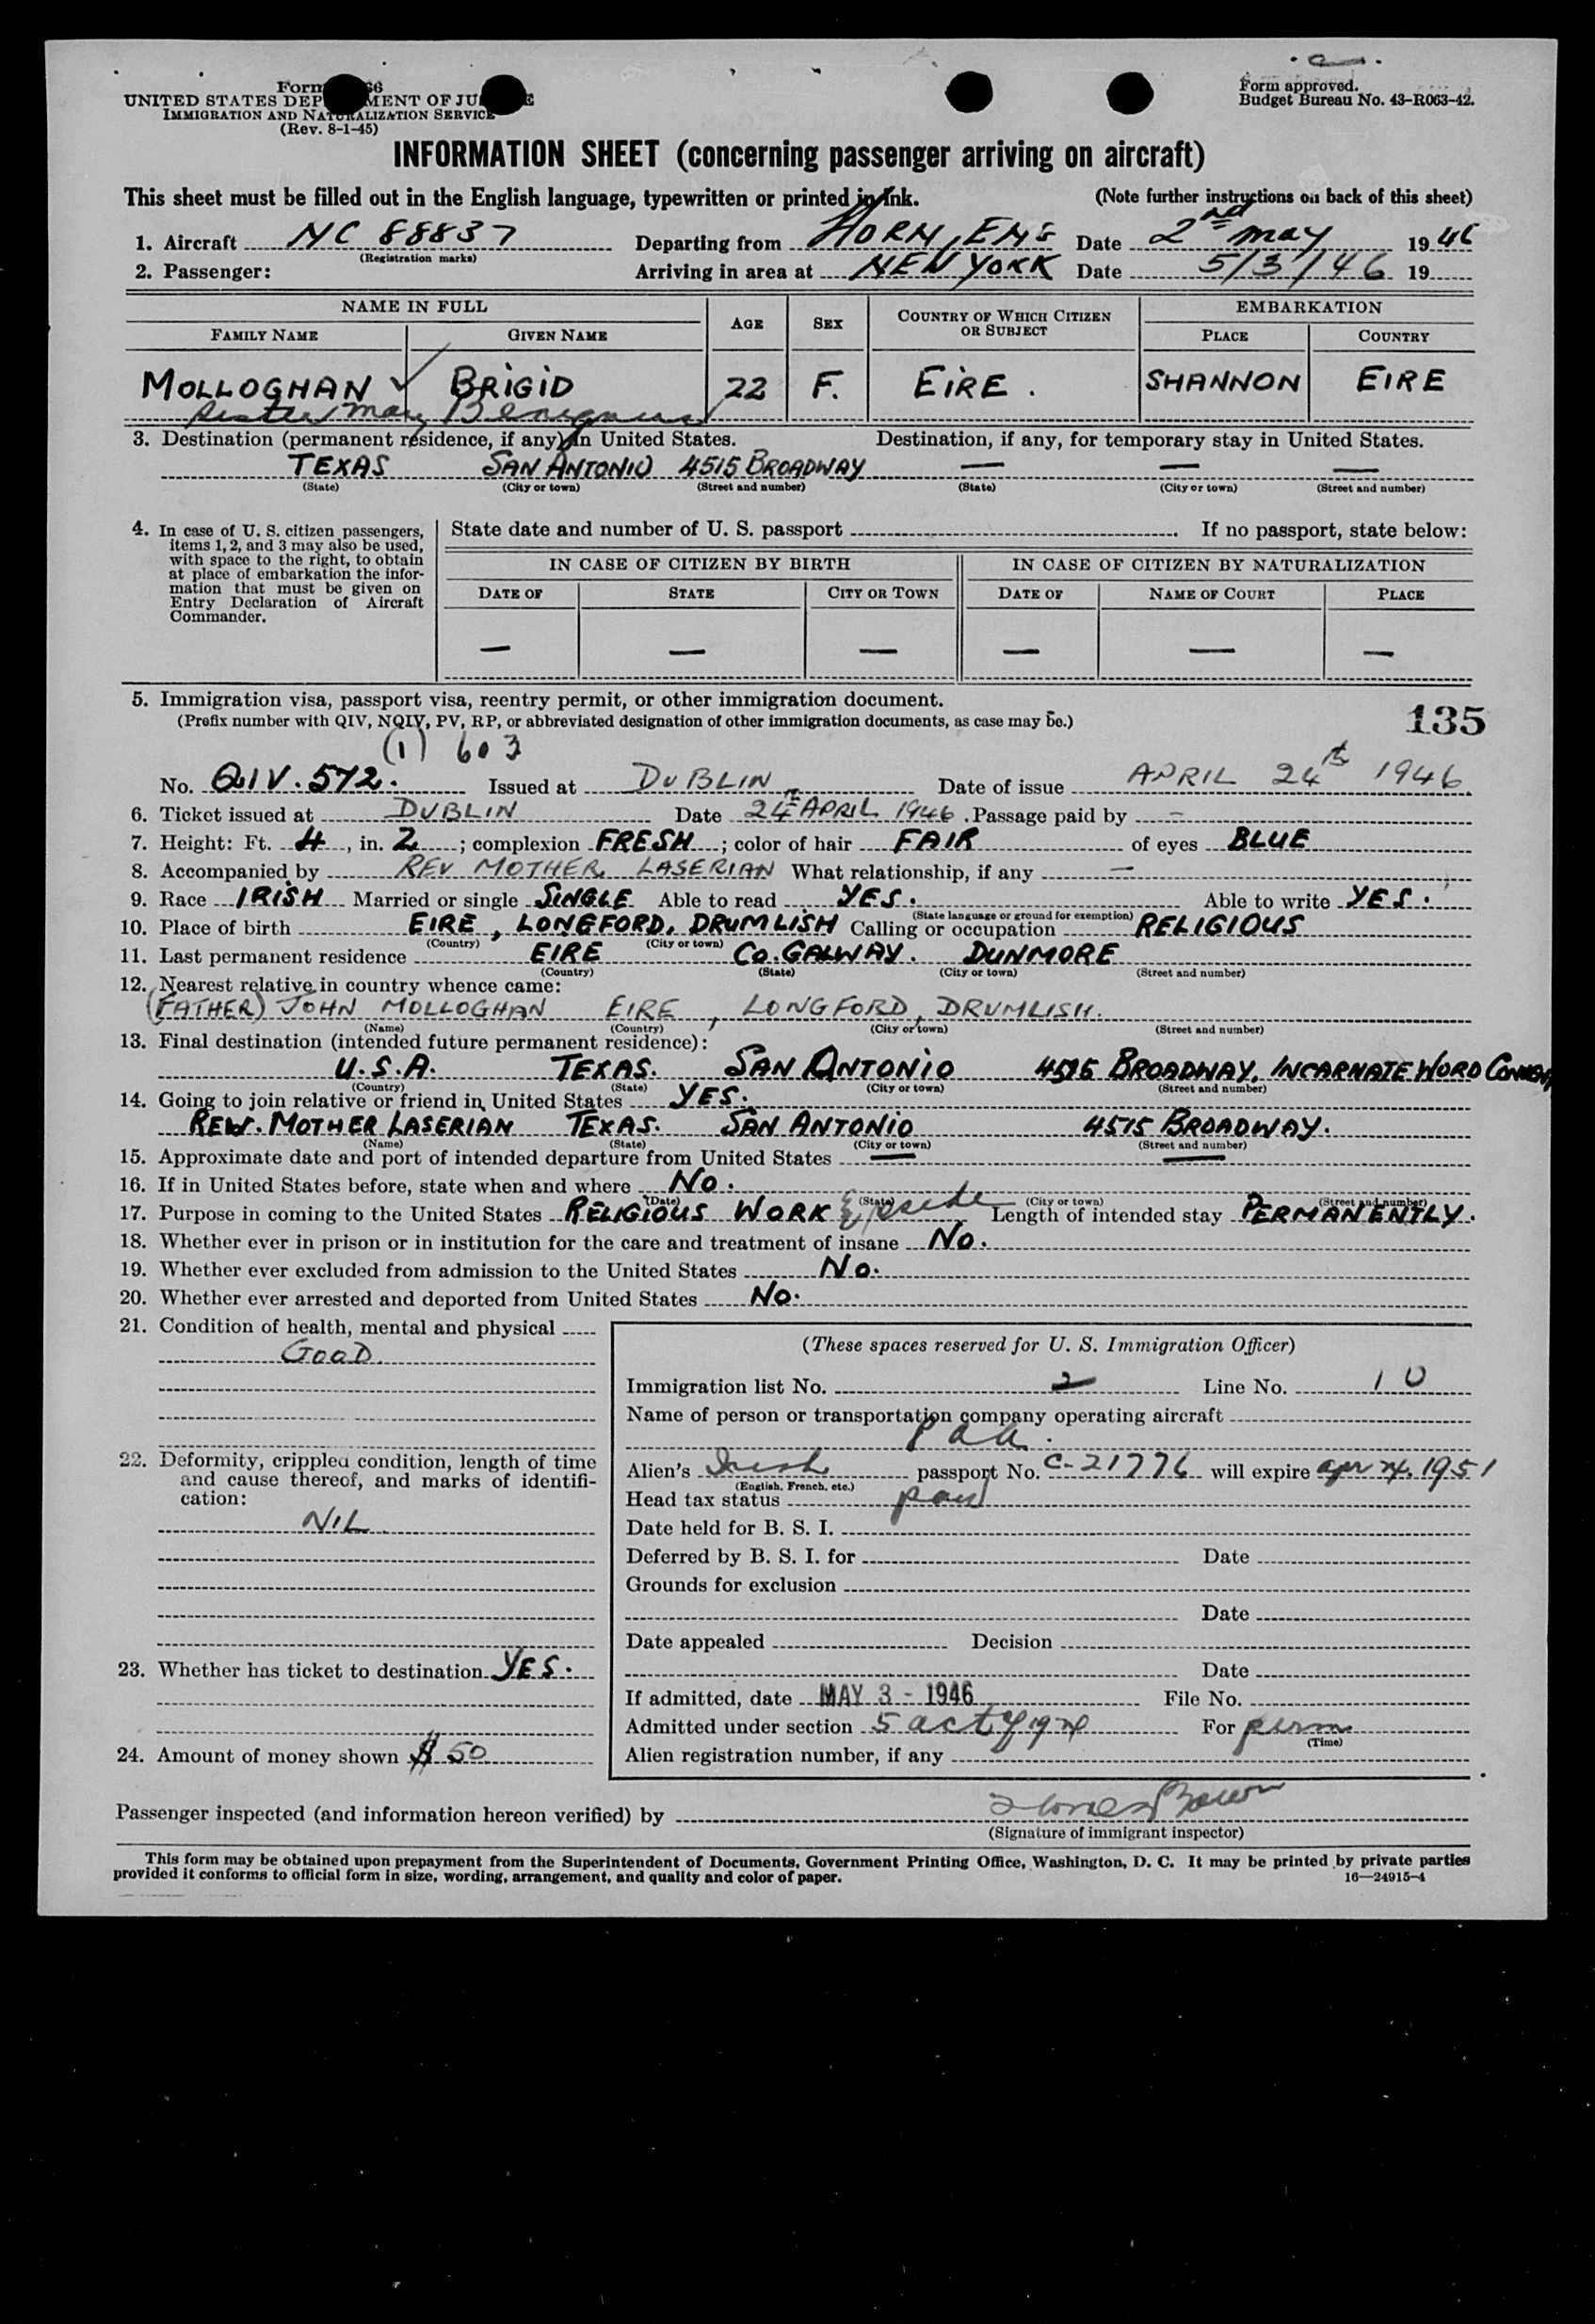 Form 66
UNITED STATES DEP MENT OF JU E
IMMIGRATION AND NATURALIZATION SERVICE
(Rev. 8-1-45)
Form approved.
Budget Bureau No. 43-R063-42.
INFORMATION SHEET (concerning passenger arriving on aircraft)
This sheet must be filled out in the English language, typewritten or printed in ink. (Note further instructions on back of this sheet)
1. Aircraft NC 88837 Departing from HORN, ENG Date 2nd May 1946
(Registration marks)
2. Passenger: Arriving in area at NEW YORK Date 5/3/46 19
NAME IN FULL AGE SEX COUNTRY OF WHICH CITIZEN OR SUBJECT EMBARKATION
FAMILY NAME GIVEN NAME PLACE COUNTRY
MOLLOGHAN ✓ BRIGID 22 F. EIRE. SHANNON EIRE
Sister Mary Benignus
3. Destination (permanent residence, if any) in United States. Destination, if any, for temporary stay in United States.
TEXAS SAN ANTONIO 4515 BROADWAY — — —
(State) (City or town) (Street and number) (State) (City or town) (Street and number)
4. In case of U. S. citizen passengers, items 1, 2, and 3 may also be used, with space to the right, to obtain at place of embarkation the information that must be given on Entry Declaration of Aircraft Commander.
State date and number of U. S. passport If no passport, state below:
IN CASE OF CITIZEN BY BIRTH IN CASE OF CITIZEN BY NATURALIZATION
DATE OF STATE CITY OR TOWN DATE OF NAME OF COURT PLACE
— — — — — —
5. Immigration visa, passport visa, reentry permit, or other immigration document.
(Prefix number with QIV, NQIV, PV, RP, or abbreviated designation of other immigration documents, as case may be.) 135
(1) 603
No. QIV. 572. Issued at DUBLIN Date of issue APRIL 24th 1946
6. Ticket issued at DUBLIN Date 24th APRIL 1946. Passage paid by –
7. Height: Ft. 4, in. 2; complexion FRESH; color of hair FAIR of eyes BLUE
8. Accompanied by REV MOTHER LASERIAN What relationship, if any —
9. Race IRISH Married or single SINGLE Able to read YES. Able to write YES.
(State language or ground for exemption)
10. Place of birth EIRE, LONGFORD, DRUMLISH Calling or occupation RELIGIOUS
(Country) (City or town)
11. Last permanent residence EIRE CO. GALWAY. DUNMORE
(Country) (State) (City or town) (Street and number)
12. Nearest relative in country whence came:
(FATHER) JOHN MOLLOGHAN EIRE, LONGFORD, DRUMLISH.
(Name) (Country) (City or town) (Street and number)
13. Final destination (intended future permanent residence):
U.S.A. TEXAS. SAN ANTONIO 4515 BROADWAY, INCARNATE WORD
(Country) (State) (City or town) (Street and number)
14. Going to join relative or friend in United States YES.
REV. MOTHER LASERIAN TEXAS. SAN ANTONIO 4515 BROADWAY.
(Name) (State) (City or town) (Street and number)
15. Approximate date and port of intended departure from United States — —
16. If in United States before, state when and where NO.
(Date) (State) (City or town) (Street and number)
17. Purpose in coming to the United States RELIGIOUS WORK & reside Length of intended stay PERMANENTLY.
18. Whether ever in prison or in institution for the care and treatment of insane NO.
19. Whether ever excluded from admission to the United States NO.
20. Whether ever arrested and deported from United States NO.
21. Condition of health, mental and physical
GOOD.
22. Deformity, crippled condition, length of time and cause thereof, and marks of identification:
NIL
23. Whether has ticket to destination YES.
24. Amount of money shown $50
(These spaces reserved for U. S. Immigration Officer)
Immigration list No. 2 Line No. 10
Name of person or transportation company operating aircraft
Paa.
Alien's Irish passport No. C-21776 will expire apr 24, 1951
(English, French, etc.)
Head tax status paid
Date held for B. S. I.
Deferred by B. S. I. for Date
Grounds for exclusion
Date
Date appealed Decision
Date
If admitted, date MAY 3 - 1946 File No.
Admitted under section 5 act of 1924 For perm
(Time)
Alien registration number, if any
Passenger inspected (and information hereon verified) by
(Signature of immigrant inspector)
This form may be obtained upon prepayment from the Superintendent of Documents, Government Printing Office, Washington, D. C. It may be printed by private parties
provided it conforms to official form in size, wording, arrangement, and quality and color of paper. 16—24915-4